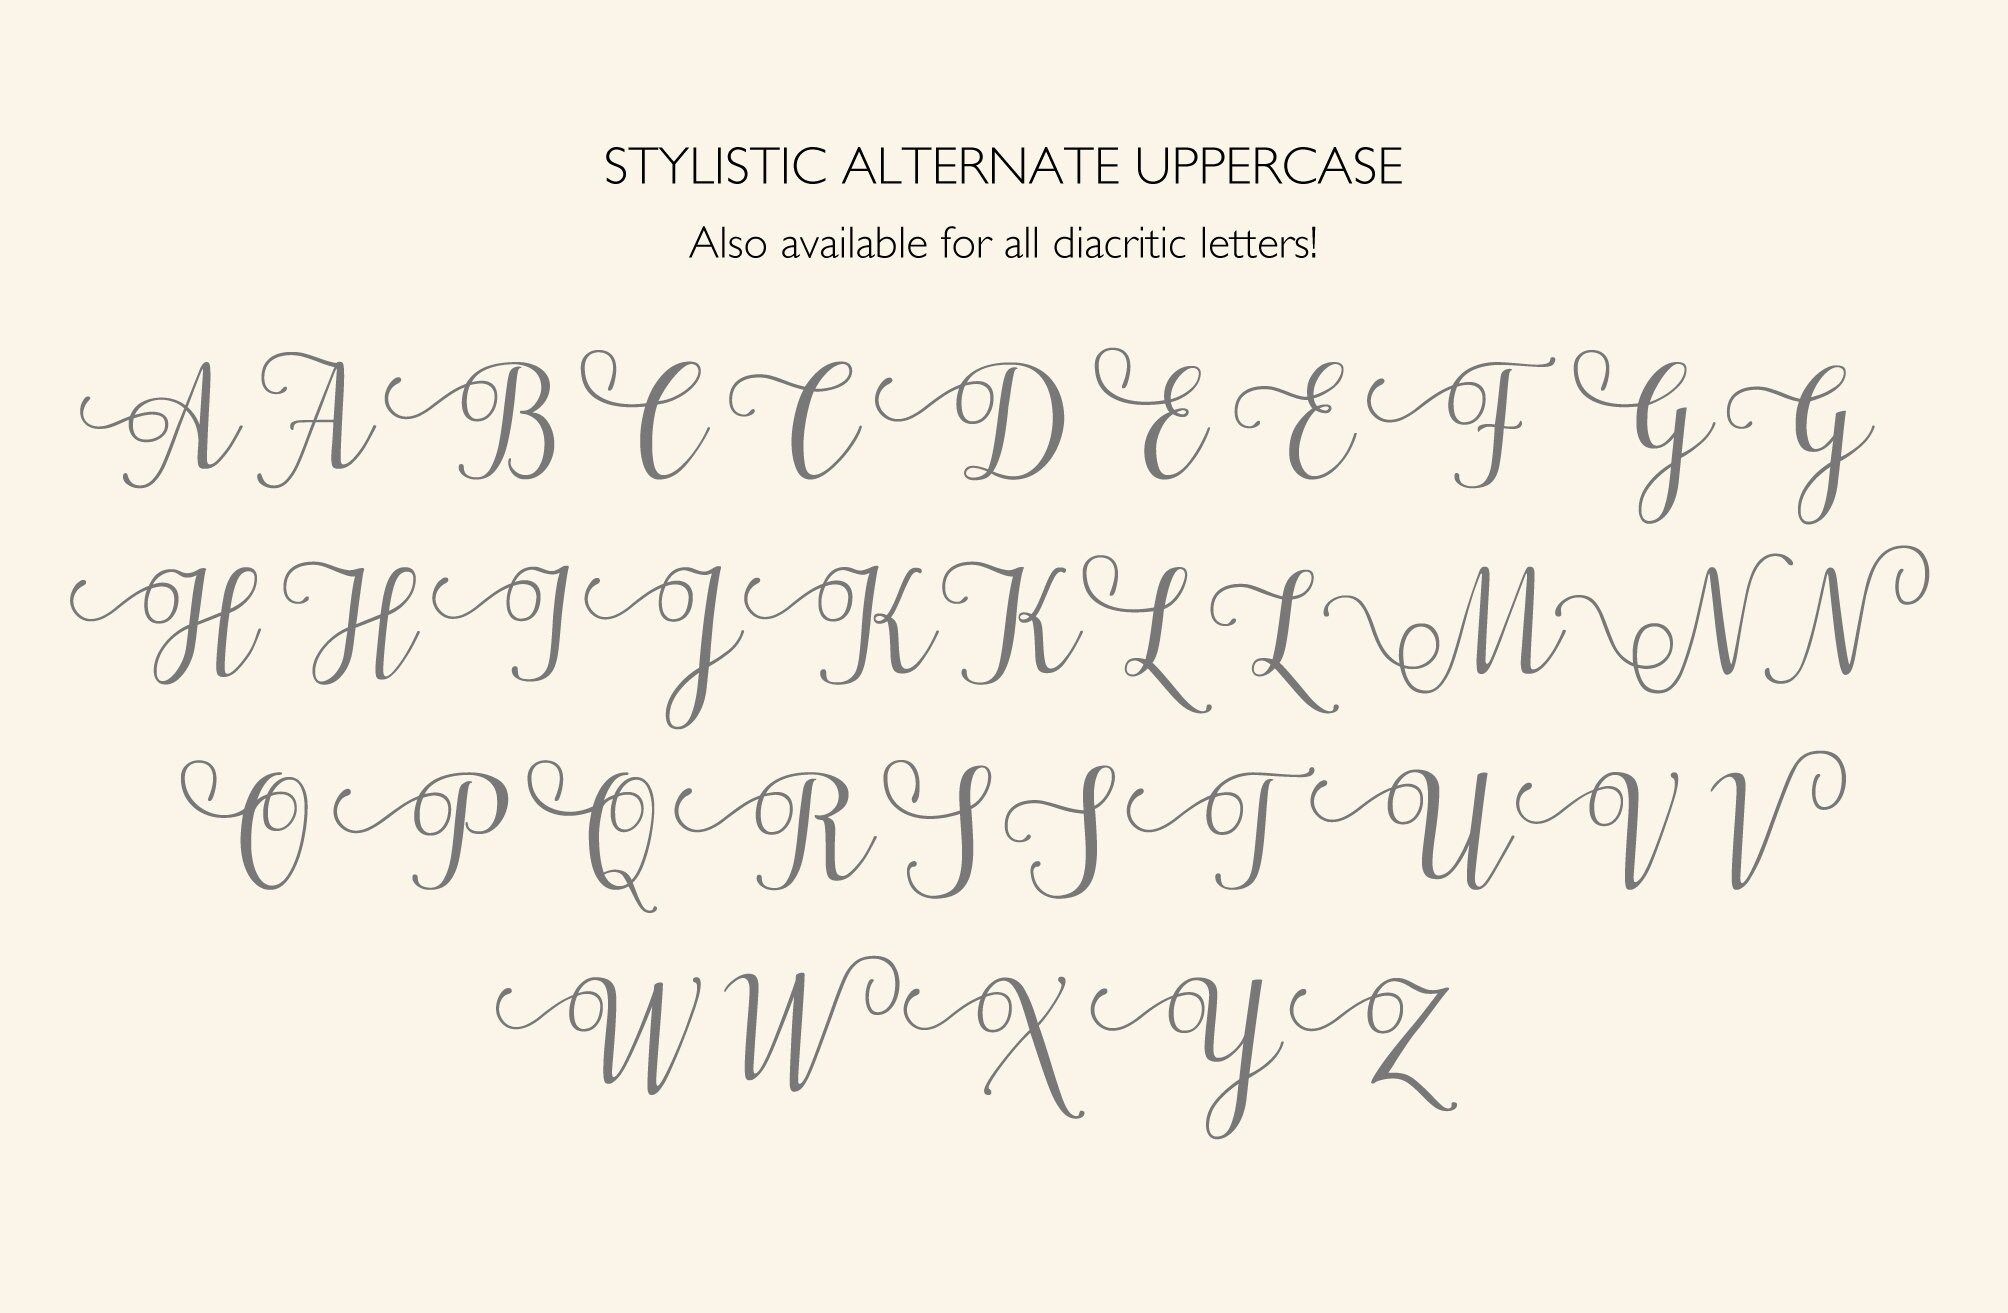 STYLISTIC ALTERNATE UPPERCASE
Also available for all diacritic letters!
A A B C C D E E F G G
H H I J K K L L M N N
O P Q R S S T U V V
W W X Y Z